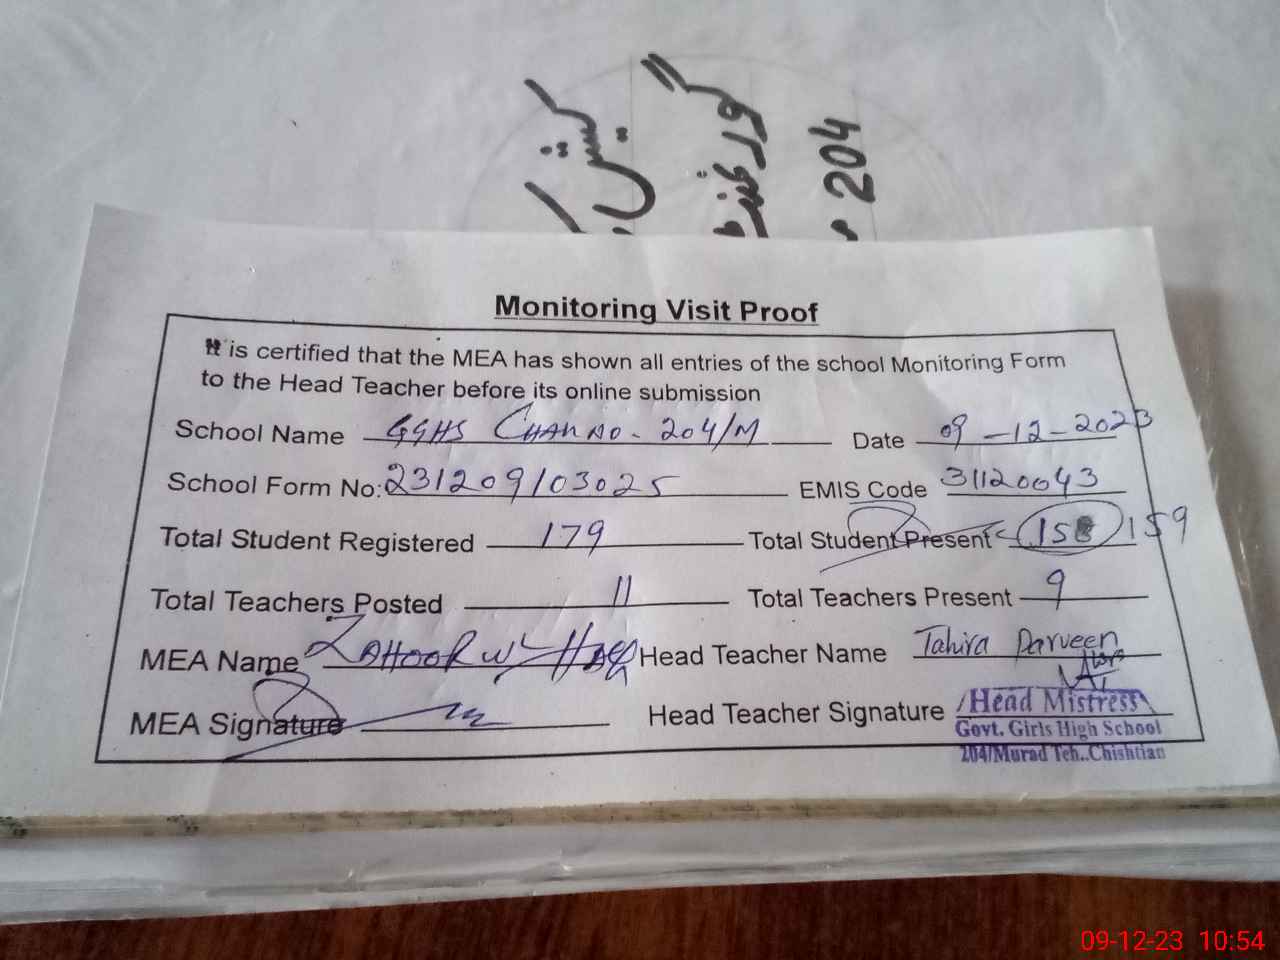 گورنمنٹ
204
Monitoring Visit Proof
It is certified that the MEA has shown all entries of the school Monitoring Form
to the Head Teacher before its online submission
School Name GGHS CHAK NO. 204/M Date 09-12-2023
School Form No: 231209103025 EMIS Code 31120043
Total Student Registered 179 Total Student Present 158 159
Total Teachers Posted 11 Total Teachers Present 9
MEA Name ZAHOOR UL HAQ Head Teacher Name Tahira Parveen
MEA Signature Head Teacher Signature
Head Mistress
Govt. Girls High School
204/Murad Teh..Chishtian
09-12-23 10:54